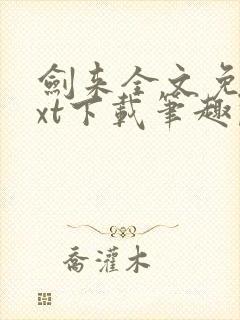 劍来全文免
xt下载筆趣
喬灌木